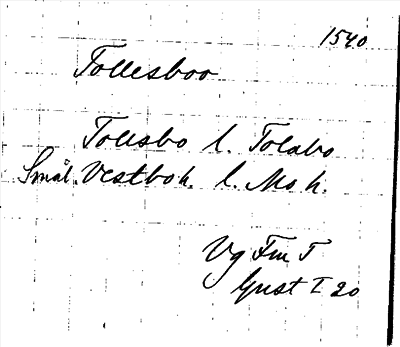 1540
Tollesboo
Tollsbo l. Tolabo
Smål. Vestbo h. l. Mo h.
Vg Fm T
Gust I 20